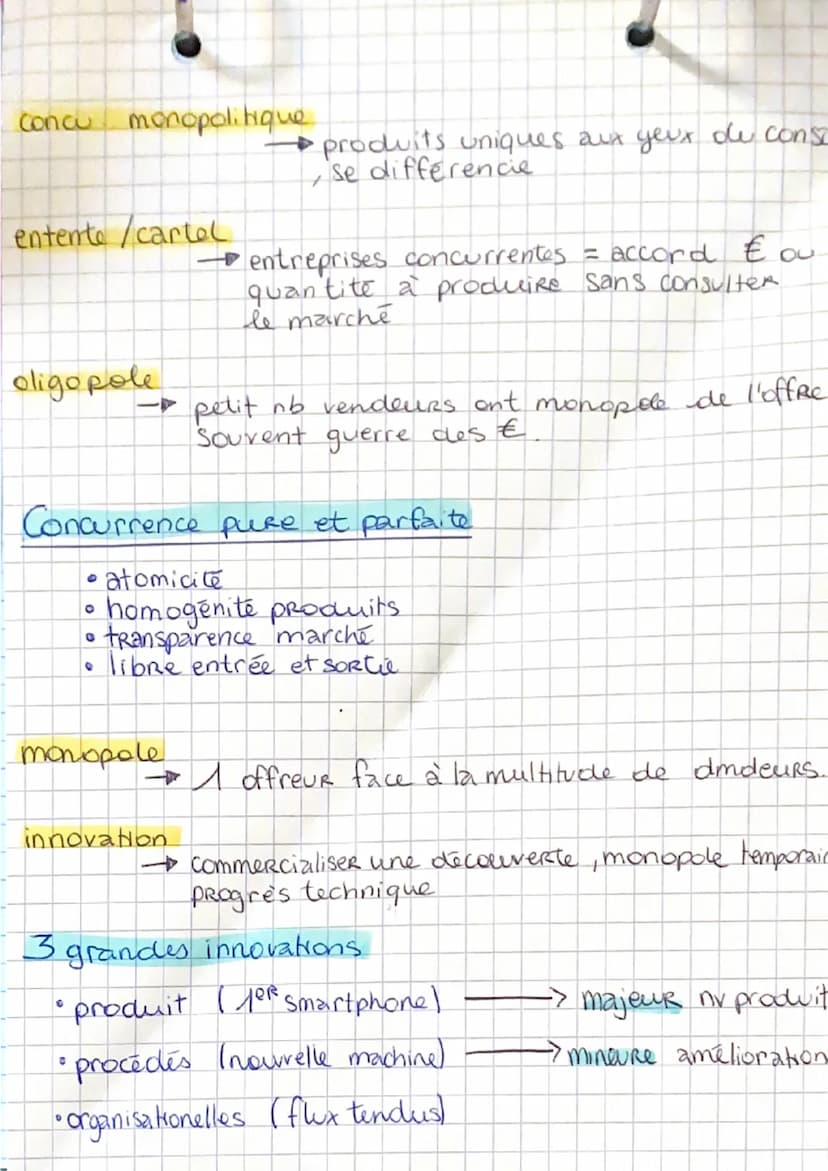 concu monopolitique
→ produits uniques aux yeux du cons
, se différencie
entente / cartel
→ entreprises concurrentes = accord € ou
quantité à produire sans consulter
le marché
oligopole
→ petit nb vendeurs ont monopole de l'offre
souvent guerre des €.
Concurrence pure et parfaite
• atomicité
• homogénité produits
• transparence marché
• libre entrée et sortie
monopole
→ 1 offreur face à la multitude de dmdeurs.
innovation
→ commercialiser une découverte, monopole temporai
progrès technique
3 grandes innovations
• produit (1er smartphone) → majeur nv produit
• procédés (nouvelle machine) → mineure amélioration
• organisationelles (flux tendus)